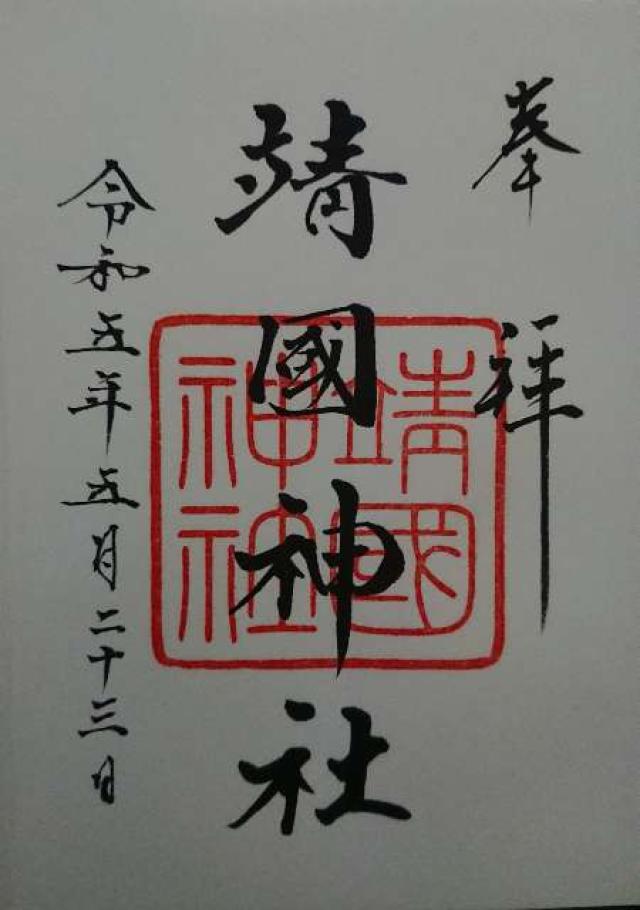 奉拝
靖國神社
靖國
神社
令和五年五月二十三日